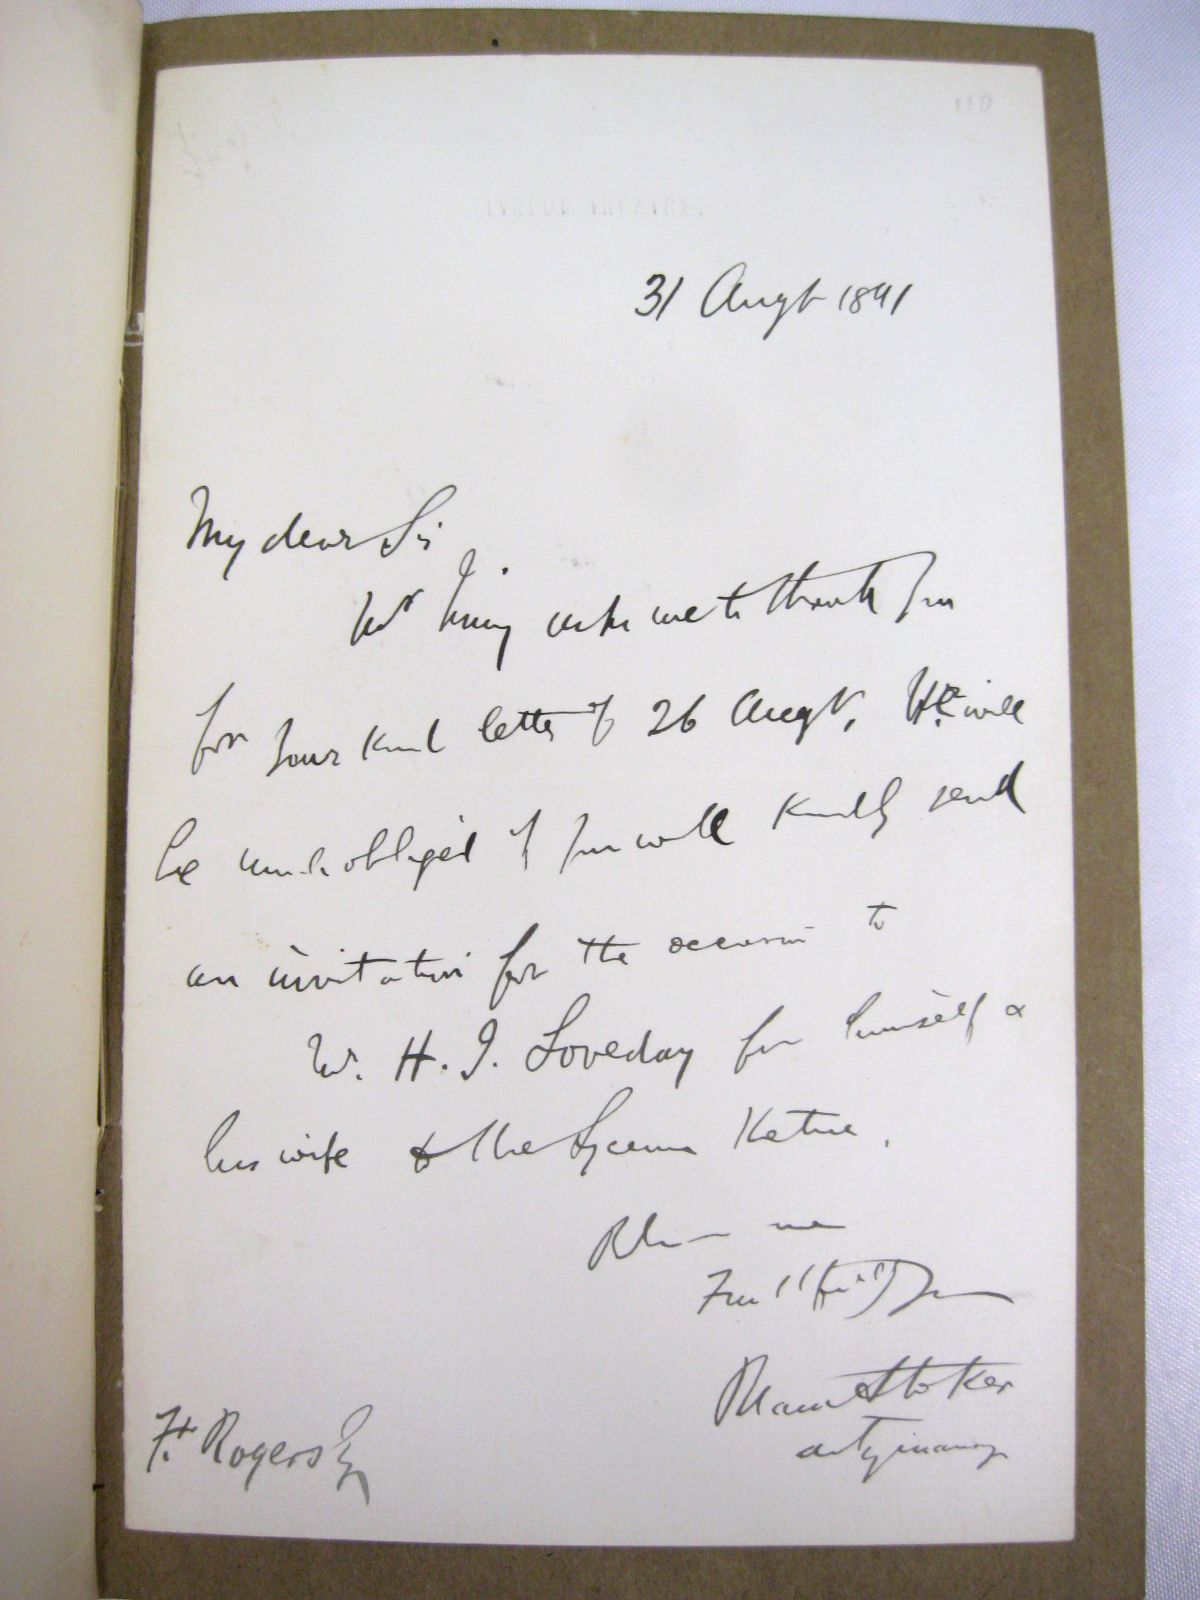 110
LYCEUM THEATRE.
31 Augt 1891
My dear Sir
Mr Irving asks me to thank you
for your kind letter of 26 Augt. He will
be much obliged if you will kindly send
an invitation for the occasion to
Mr. H. J. Loveday for himself &
his wife & the Lyceum Theatre.
Believe me
Yours
Bram Stoker
actg manag
Ft Rogers Esq